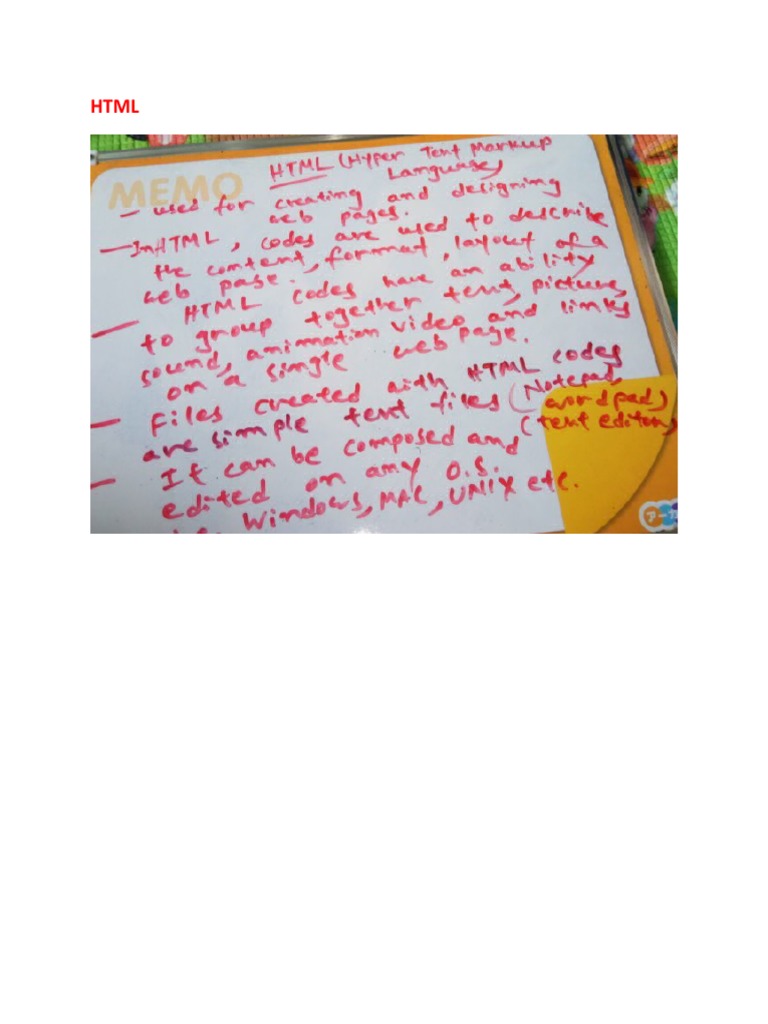 HTML
MEMO
HTML (Hyper Text Markup
Language)
— used for creating and designing
web pages.
— In HTML, codes are used to describe
the content, format, layout of a
web page.
— HTML codes have an ability
to group together text, picture,
sound, animation video and links
on a single web page.
— Files created with HTML codes
are simple text files (Notepad,
wordpad)
(text editor)
— It can be composed and
edited on any O.S.
Windows, MAC, UNIX etc.